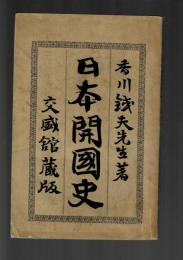 香川鐵夫先生著
日本開國史
交盛館蔵版